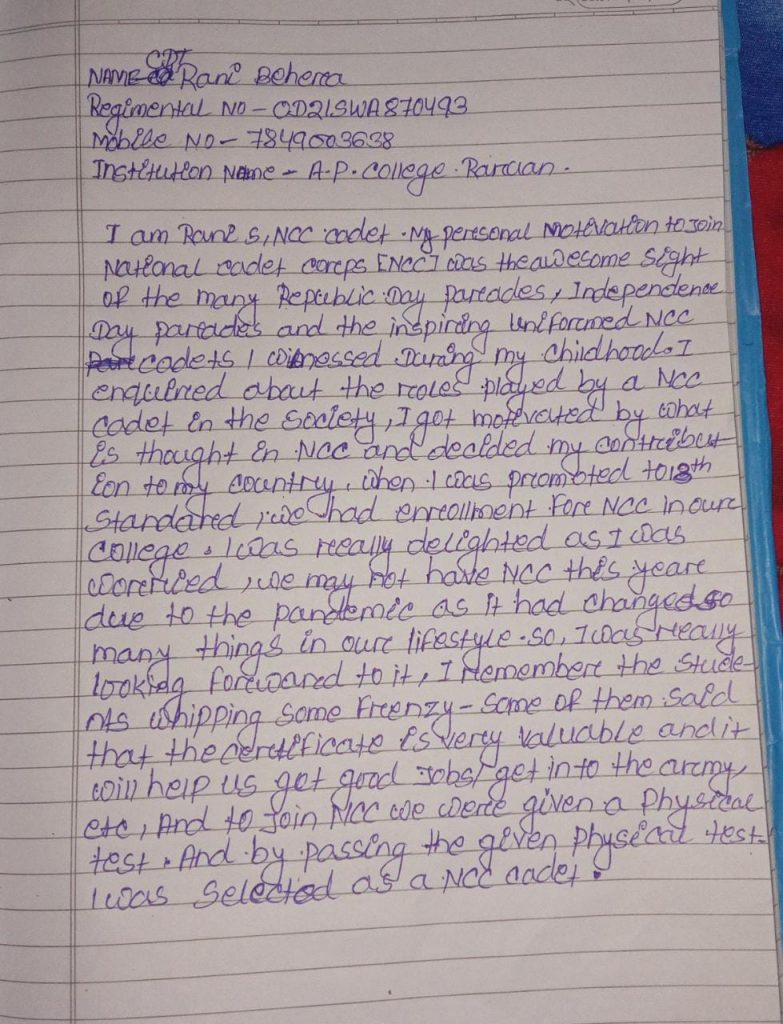 NAME CDT Rani Beherra
Regimental NO - OD21SWA870493
Mobile NO - 7849003638
Institution Name - A.P. College. Rarcuan.
I am Rani s, NCC cadet. My peresonal Motivation to Join
National cadet coreps [NCC] was the awesome sight
of the many Republic Day parcades, Independence
Day parcades and the inspireing Uniforemed NCC
cadets I witnessed During my childhood. I
enquired about the rcoles played by a NCC
cadet in the society, I got motivated by what
is thought in NCC and decided my contrcibut
ion to my country. when I was prcomoted to 13th
Standared, we had enrcollment Fore NCC in ourc
college. I was rceally delighted as I was
worcried, we may not have NCC this yeare
due to the pandemic as it had changed so
many things in ourc lifestyle. So, I was rceally
looking forewared to it, I rcememberc the stude-
nts whipping some Frcenzy - some of them said
that the cercteficate is vercy valuable and it
will help us get good Jobs/ get into the arcmy,
etc, And to Join NCC we werce given a Physical
test. And by passing the given physical test.
I was Selected as a NCC cadet.